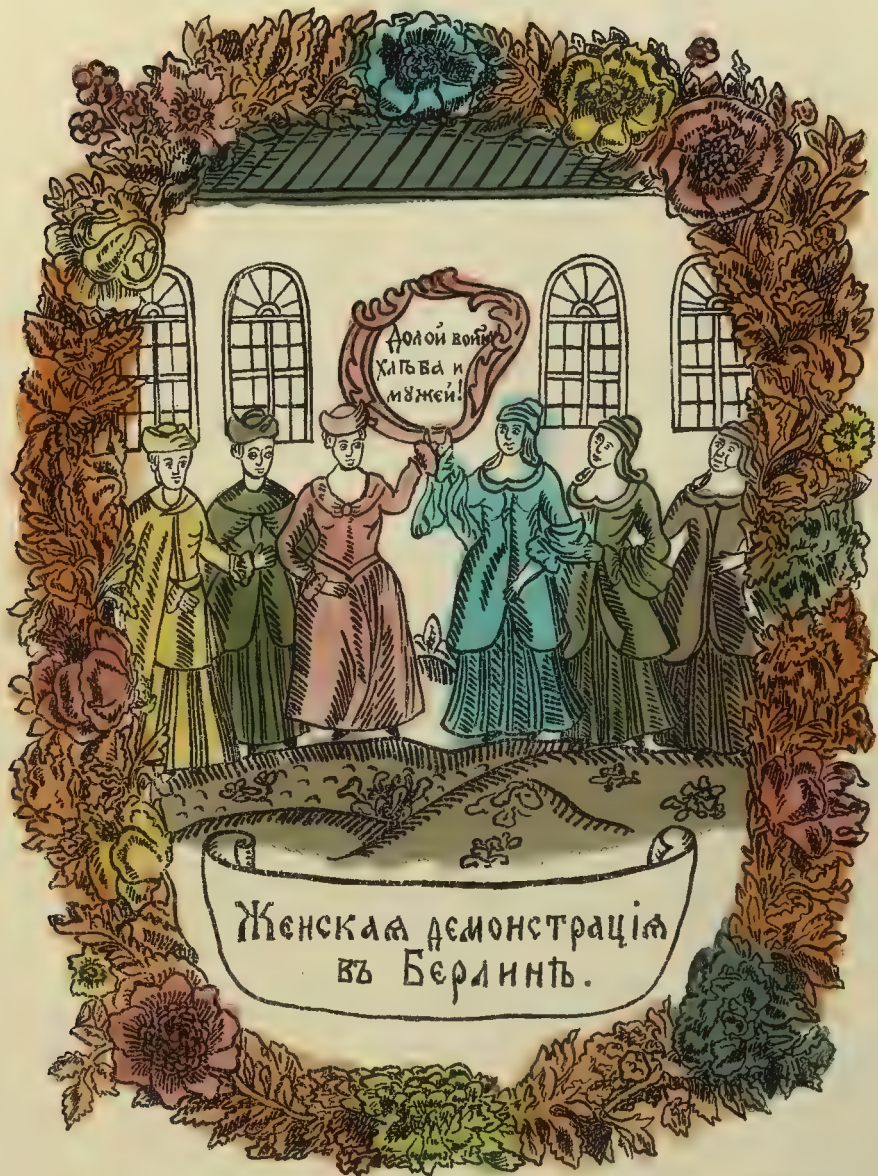 Долой войну
хлѣба и
мужей!
Женская демонстрація
въ Берлинѣ.